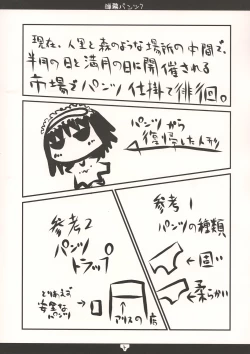 爆発パンツ?
現在、人里と森のような場所の中間で、
半月の日と満月の日に開催される
市場をパンツ仕掛で徘徊。
パンツから
復帰した人形
参考1
パンツの種類
固い
柔らかい
参考2
パンツ
トラップ
とりあえず
安里なパンツ
アリスの店